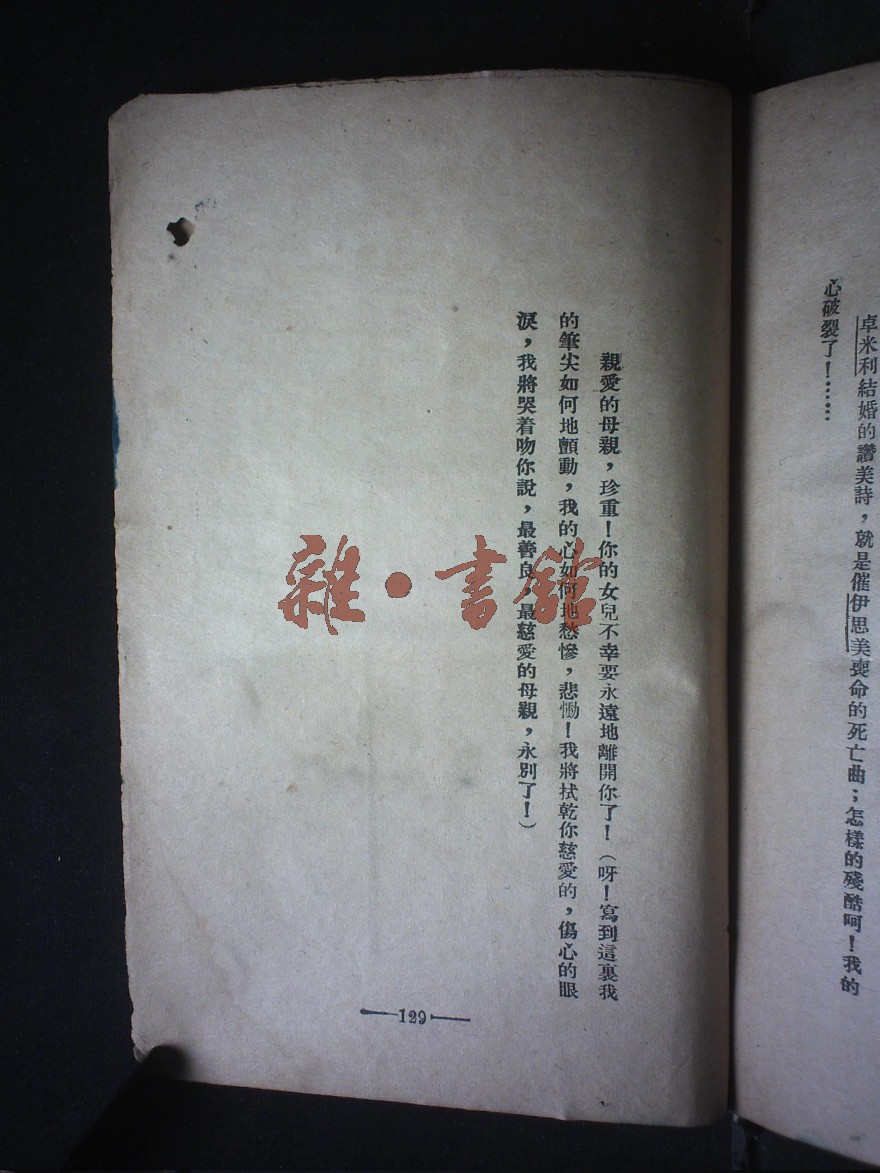 卓米利結婚的讚美詩，就是催伊思美喪命的死亡曲；怎樣的殘酷呵！我的
心破裂了！……
親愛的母親，珍重！你的女兒不幸要永遠地離開你了！（呀！寫到這裏我
的筆尖如何地顫動，我的心如何地愁慘，悲慟！我將拭乾你慈愛的，傷心的眼
淚，我將哭着吻你說，最善良，最慈愛的母親，永別了！）
129
雜·書館